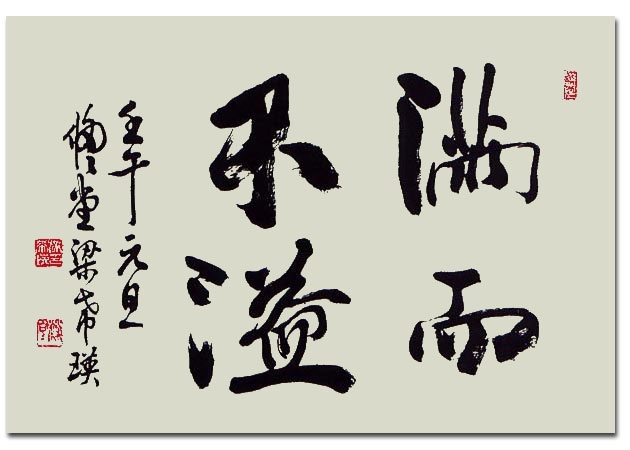 滿而
不溢
壬午元旦
脩堂梁希瑛